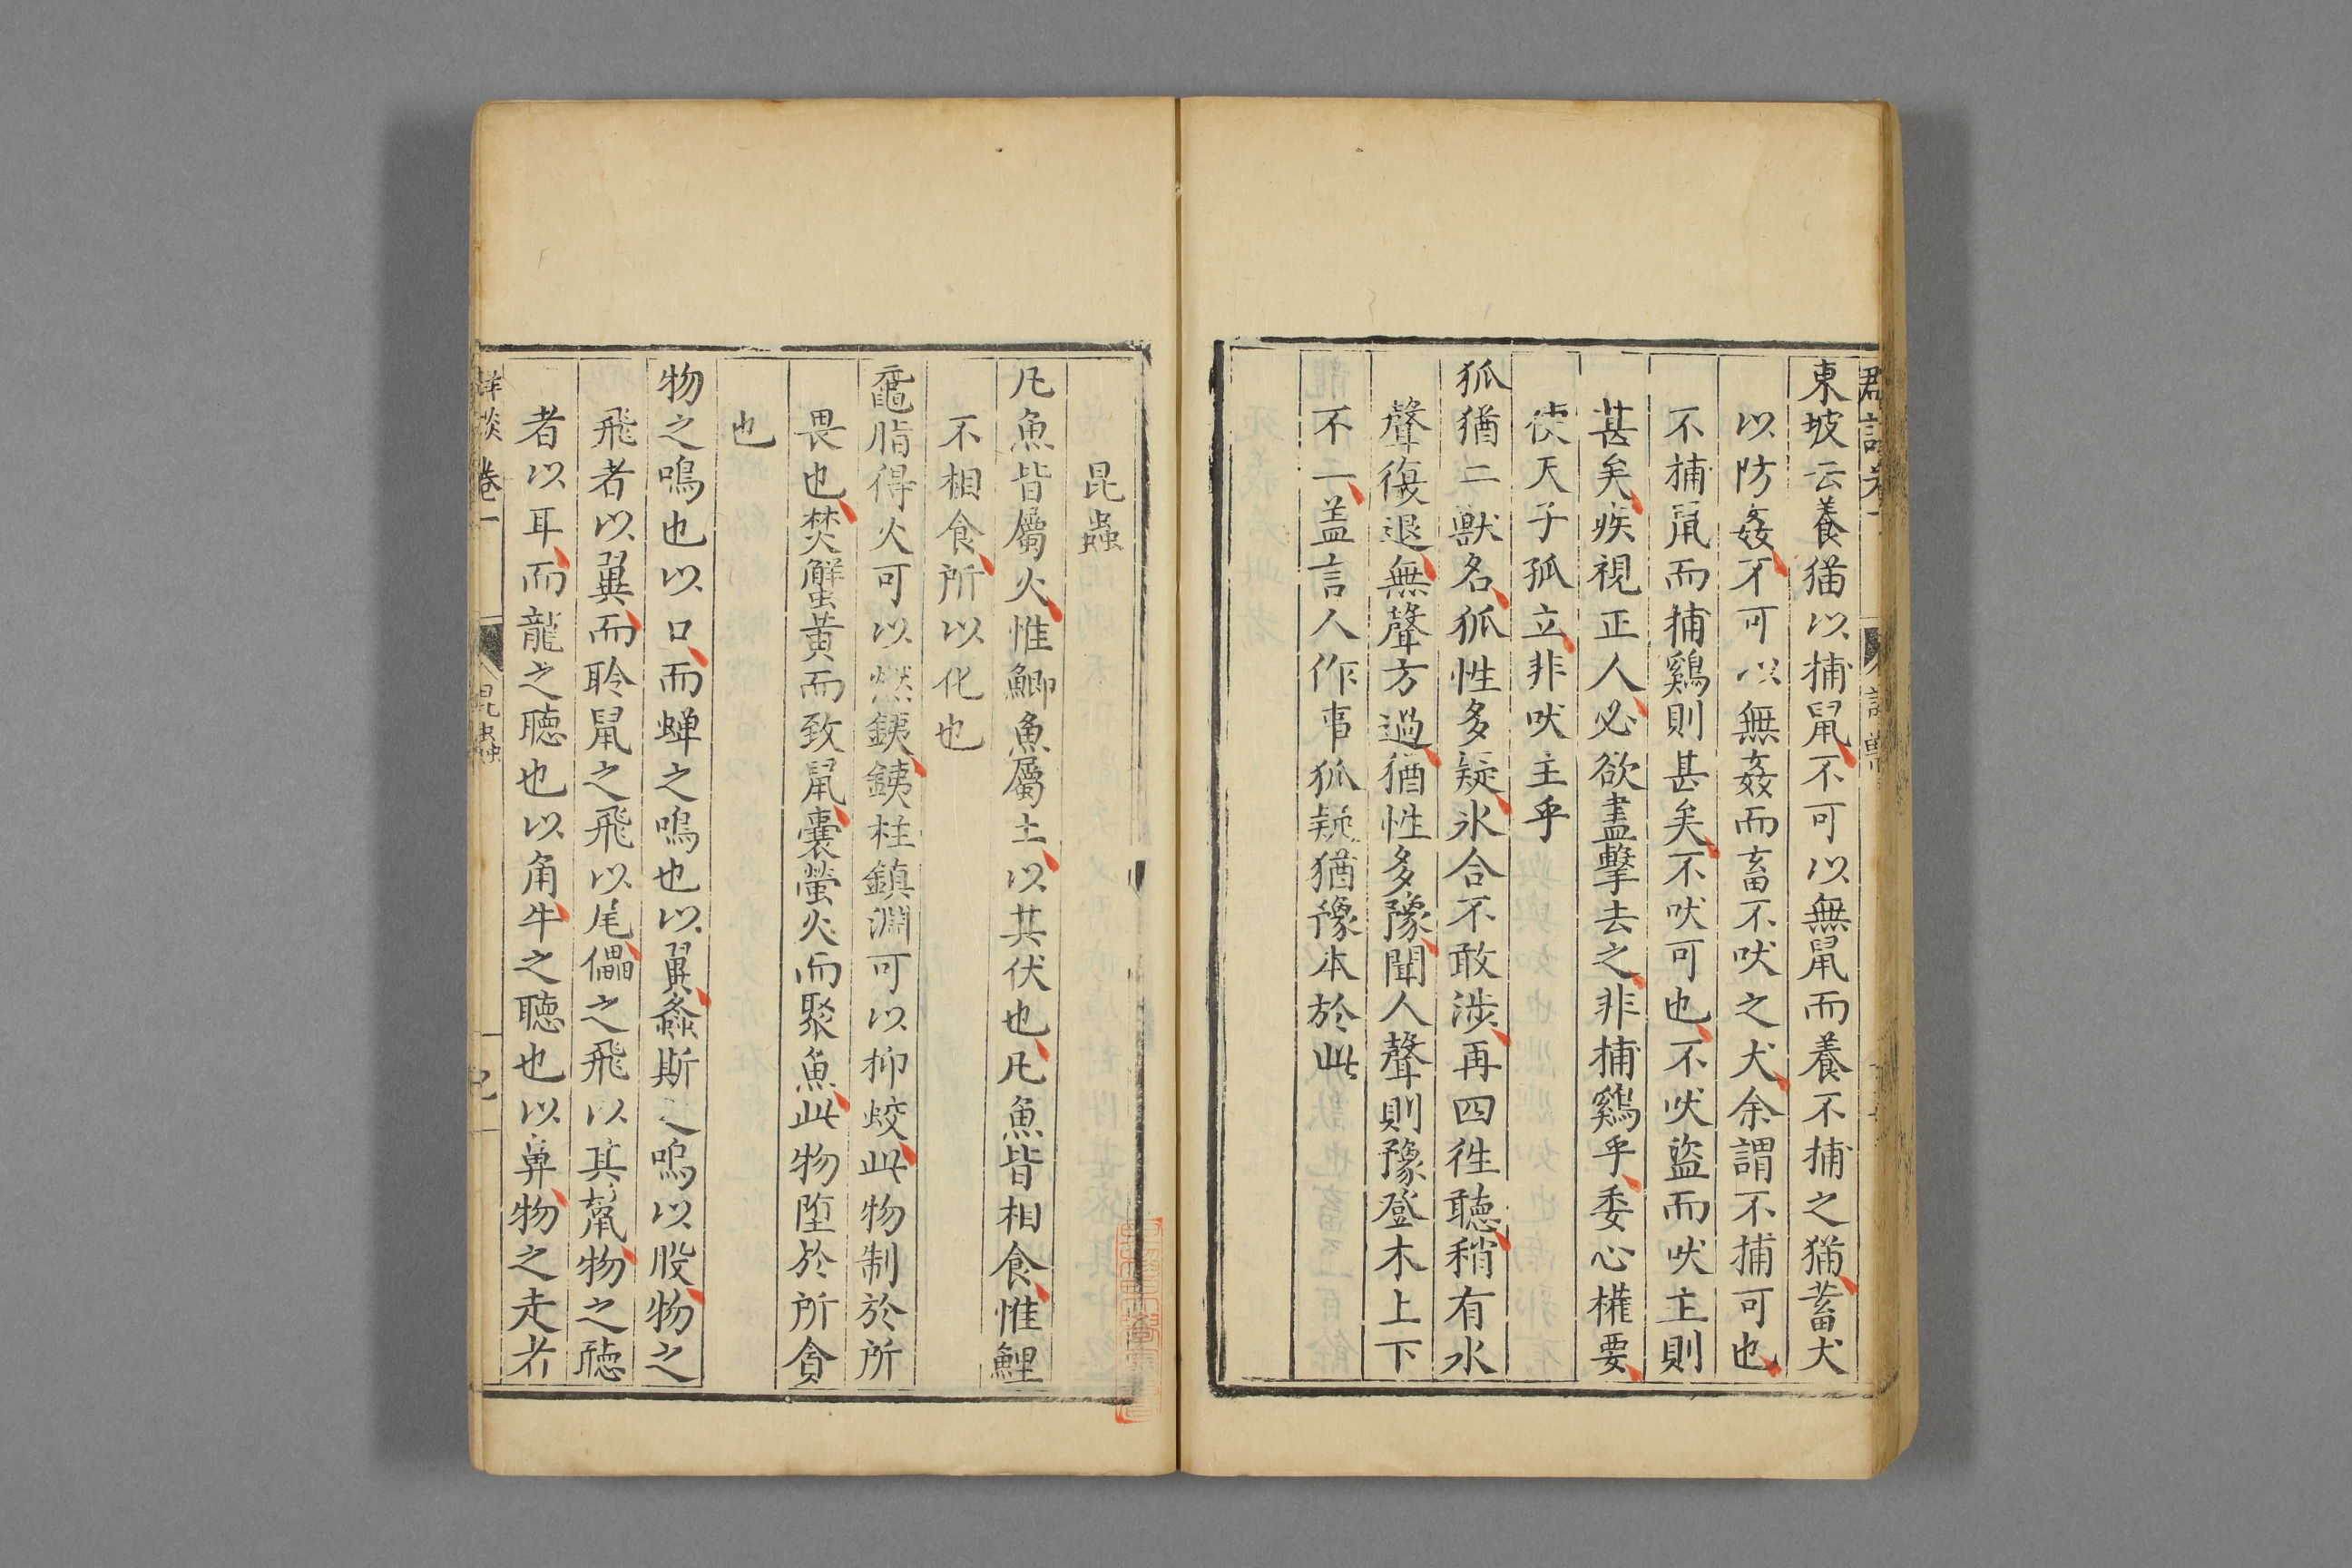 東坡云養猫以捕鼠不可以無鼠而養不捕之猫蓄犬
以防姦不可以無姦而畜不吠之犬余謂不捕可也
不捕鼠而捕鷄則甚矣不吠可也不吠盜而吠主則
甚矣疾視正人必欲盡擊去之非捕鷄乎委心權要
使天子孤立非吠主乎
狐猶二獸名狐性多疑氷合不敢涉再四徃聽稍有水
聲復退無聲方過猶性多豫聞人聲則豫登木上下
不一盖言人作事狐疑猶豫本於此
昆蟲
凡魚皆屬火惟鯽魚屬土以其伏也凡魚皆相食惟鯉
不相食所以化也
黿脂得火可以燃鐵鐵柱鎮淵可以抑蛟此物制於所
畏也焚蟹黃而致鼠囊螢火而聚魚此物墮於所貪
也
物之鳴也以口而蟬之鳴也以翼螽斯之鳴以股物之
飛者以翼而聆鼠之飛以尾儡之飛以其髯物之聽
者以耳而龍之聽也以角牛之聽也以鼻物之走者
卷一
昆蟲